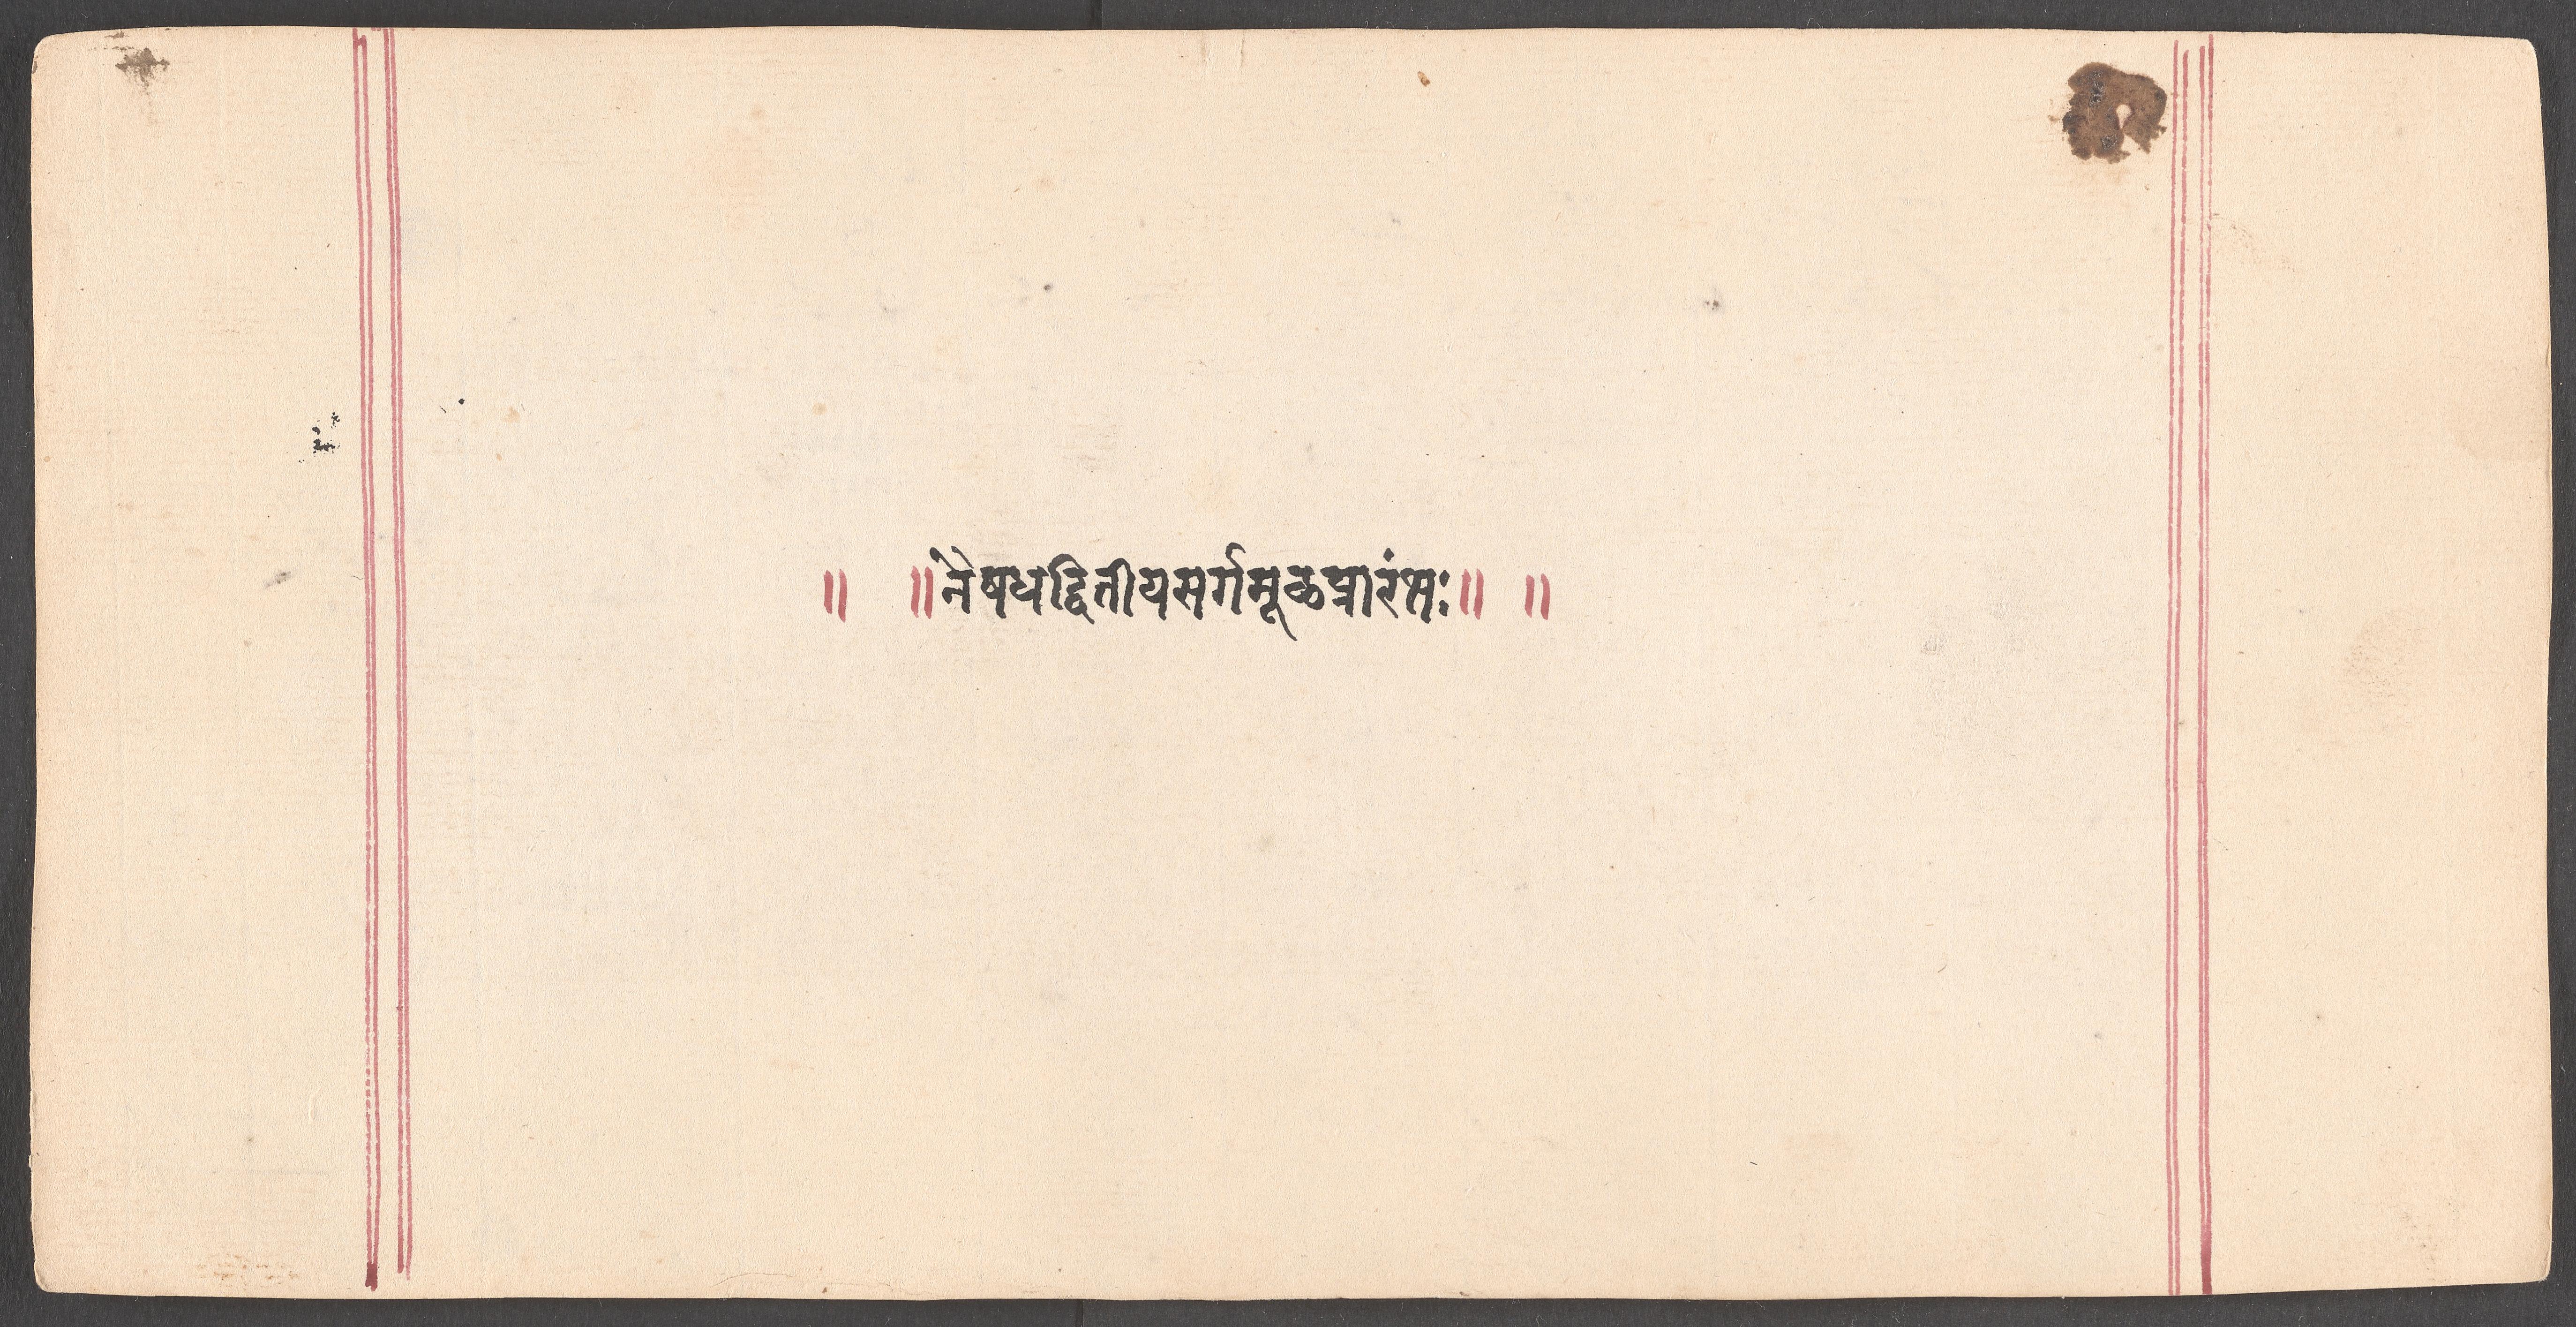 ॥ ॥नैषधद्वितीयसर्गमूळप्रारंभः॥ ॥